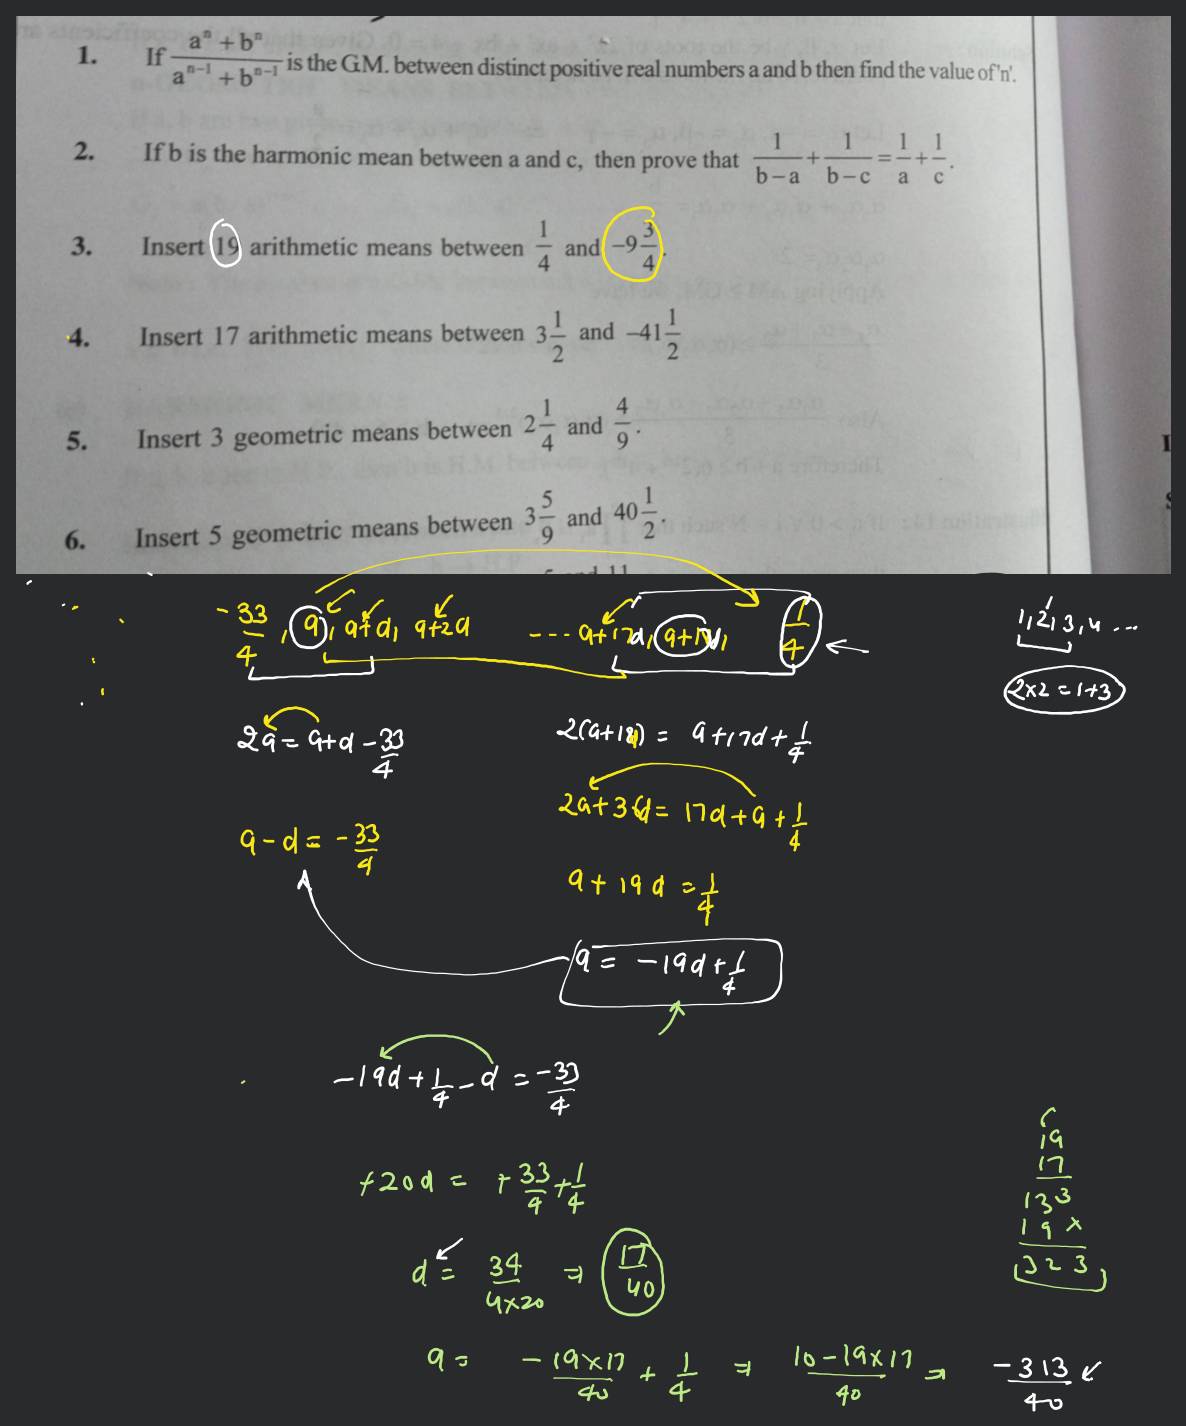 1. If (aⁿ + bⁿ)/(aⁿ⁻¹ + bⁿ⁻¹) is the G.M. between distinct positive real numbers a and b then find the value of 'n'.
2. If b is the harmonic mean between a and c, then prove that 1/(b−a) + 1/(b−c) = 1/a + 1/c.
3. Insert 19 arithmetic means between 1/4 and −9 3/4.
4. Insert 17 arithmetic means between 3 1/2 and −41 1/2
5. Insert 3 geometric means between 2 1/4 and 4/9.
6. Insert 5 geometric means between 3 5/9 and 40 1/2.
-33/4, a, a+d, a+2d --- a+17d, a+18d, 1/4
1, 2, 3, 4 ...
2×2 = 1+3
2a = a+d - 33/4
2(a+18d) = a+17d + 1/4
2a + 36d = 17d + a + 1/4
a - d = - 33/4
a + 19d = 1/4
a = -19d + 1/4
-19d + 1/4 - d = -33/4
+20d = + 33/4 + 1/4
d = 34/(4×20) ⇒ 17/40
19
17
133
19×
323
a = - 19×17/40 + 1/4 ⇒ (10 - 19×17)/40 ⇒ -313/40